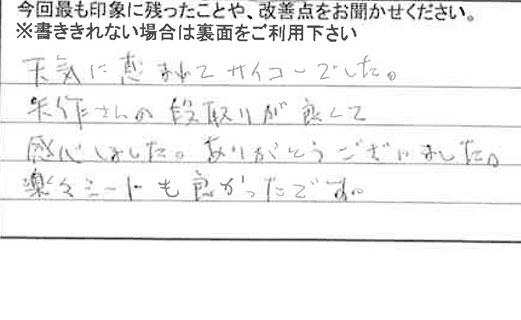 今回最も印象に残ったことや、改善点をお聞かせください。
※書ききれない場合は裏面をご利用下さい
天気に恵まれてサイコーでした。
さんの段取りが良くて
感心しました。ありがとうございました。
楽々シートも良かったです。